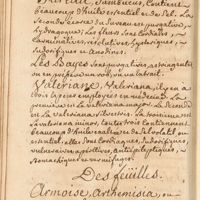 Sambucus, Contient
beaucoup d'huile essentiel et de Sel. La
Seconde écorce du Sureau est purgative,
hydragogue; Les fleurs sont Cordiales,
Carminatives, résolutives, hysteriques,
Sudorifiques et Anodines.
Les bayes Sont purgatives, astringentes
ou en un
Valeriane, Valeriana, il y en a
trois Especes employées en médecine. La
premiere est La valeriana major. La Seconde
est La valeriana Silvestris. La troisieme est
La valeriana minor, toutes trois Contiennent
beaucoup d'huile exaltée et de Sel volatil ou
essentiel, elles Sont Cordiaques, Sudorifiques,
vulneraires, apéritives, antiépileptiques,
Stomachiques et vermifuges.
Des feüilles.
Armoise, Arthemisia, ou